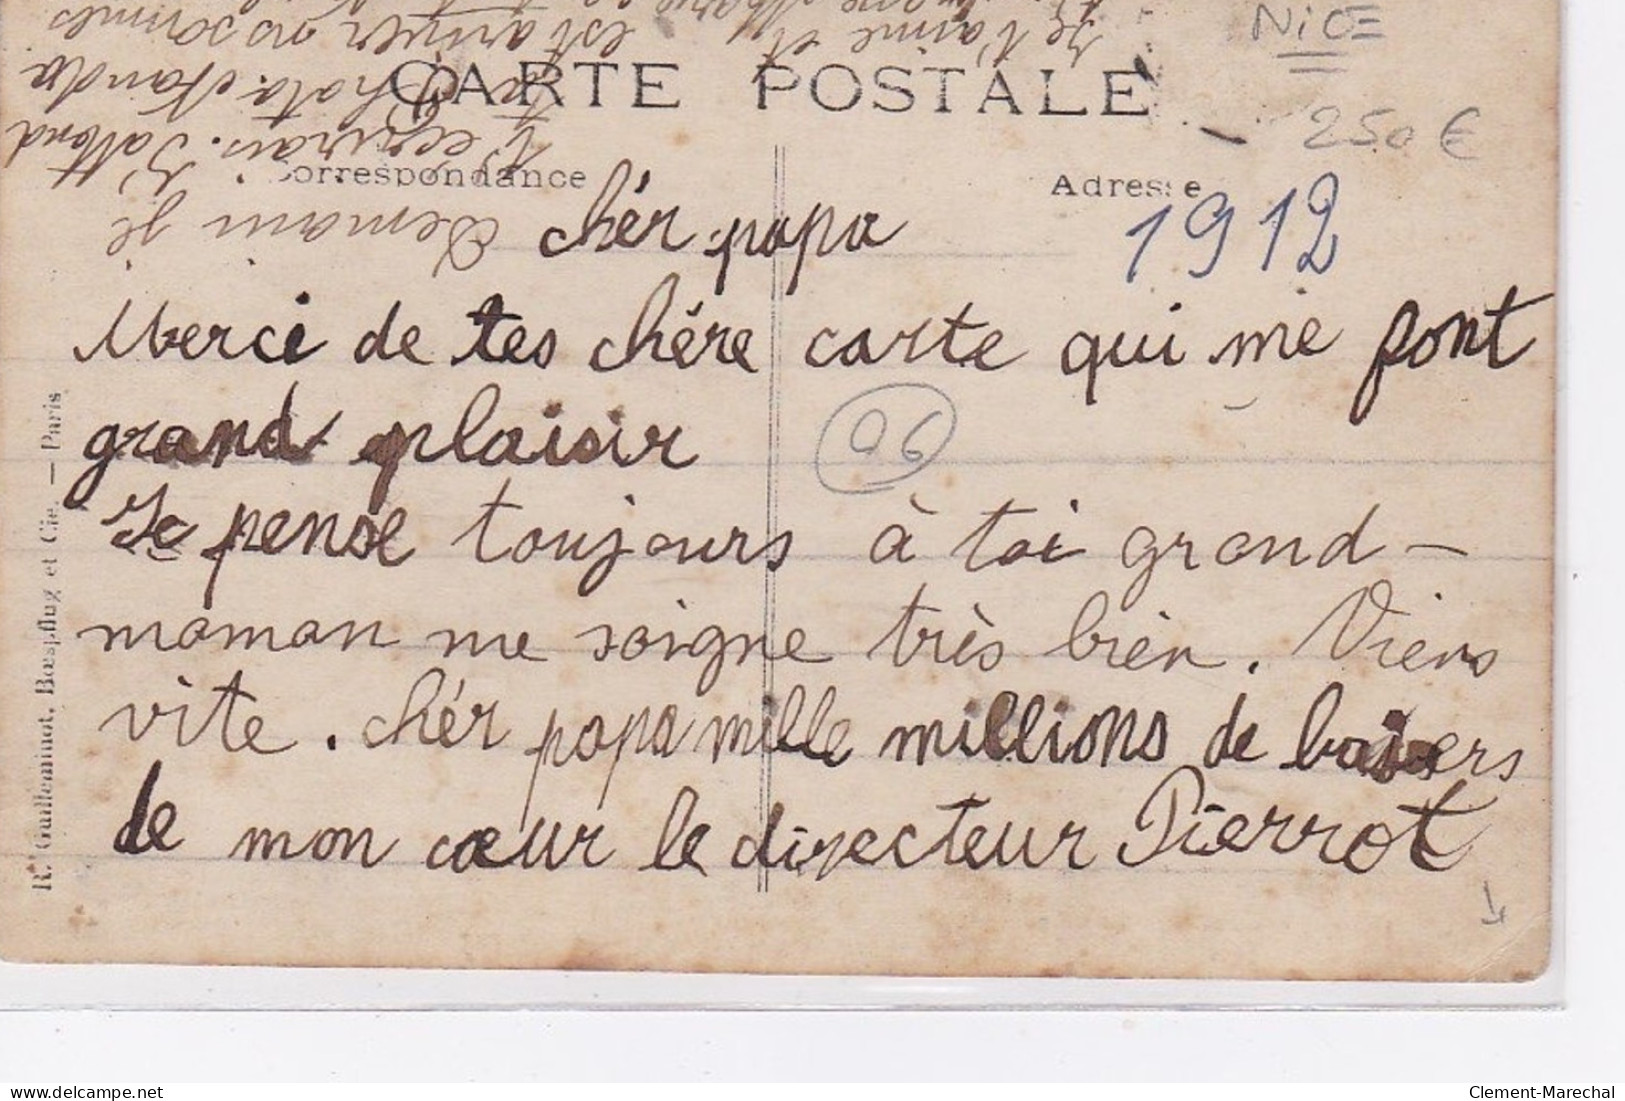 NICE
CARTE POSTALE
250 €
Correspondance
Adresse
1912
chér papa
Merci de tes chére carte qui me font
grand plaisir
06
Je pense toujours à toi grand-
maman me soigne très bien. Viens
vite. chér papa mille millions de baisers
de mon cœur le directeur Pierrot
R. Guilleminot, Bœspflug et Cie. — Paris
Demain je
t'ecrirais. J'attend
est arriver nos sommes
Je t'aime et
delcampe.net
Clement-Marechal